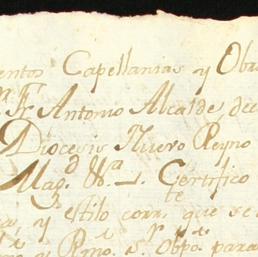 entos Capellanias y Obra
Fr Antonio Alcalde, de
Diocesis Nuevo Reyno
Mag.d &.a Certifico
y estilo corr.te que se
y Rmo. S.r Obpo. para